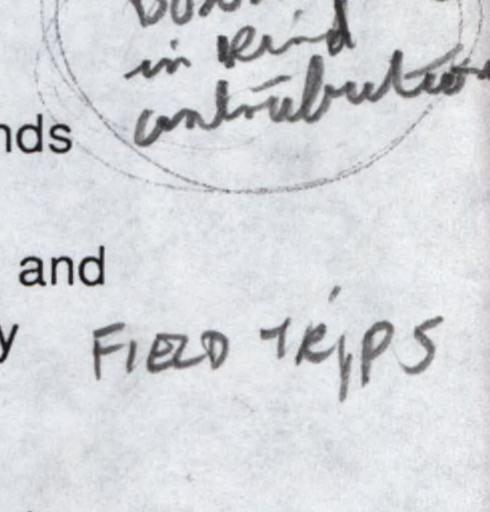 in kind
contribution
nds
and
y FIELD TRIPS